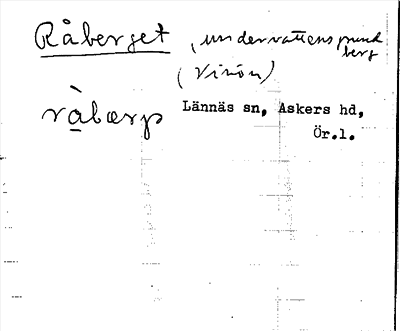 Råberget, undervattensgrund
berg
(Virön)
Lännäs sn, Askers hd,
Ör.l.